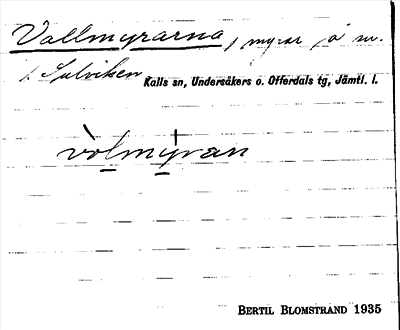 Vallmyrarna, myrar å nr.
i. Sulviken Kalls sn, Undersåkers o. Offerdals tg, Jämtl. l.
vòlmýran
BERTIL BLOMSTRAND 1935